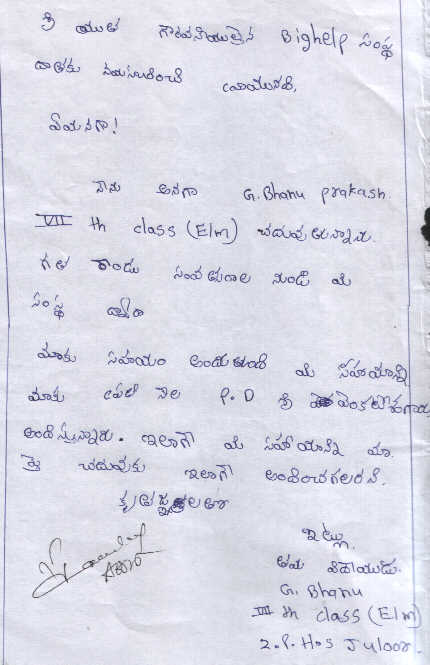 శ్రీ యుత గౌరవనీయులైన Bighelp సంస్థ
దాతకు నమస్కరించి వ్రాయునది,
ఏమనగా!
నేను అనగా G. Bhanu prakash.
VII th class (E/m) చదువుతున్నాను.
గత రెండు సంవత్సరాల నుండి మీ
సంస్థ ద్వారా
మాకు సహయం అందుతుంది మీ సహయాన్ని
మాకు ప్రతి నెల P.D శ్రీ
అందిస్తున్నారు. ఇలాగే మీ సహాయాన్ని మా
చదువుకు ఇలాగే అందించగలరని.
కృతజ్ఞతలతో
ఇట్లు
తమ విధేయుడు.
G. Bhanu
VII th class (E/m)
Z.P. H.S Juloor.